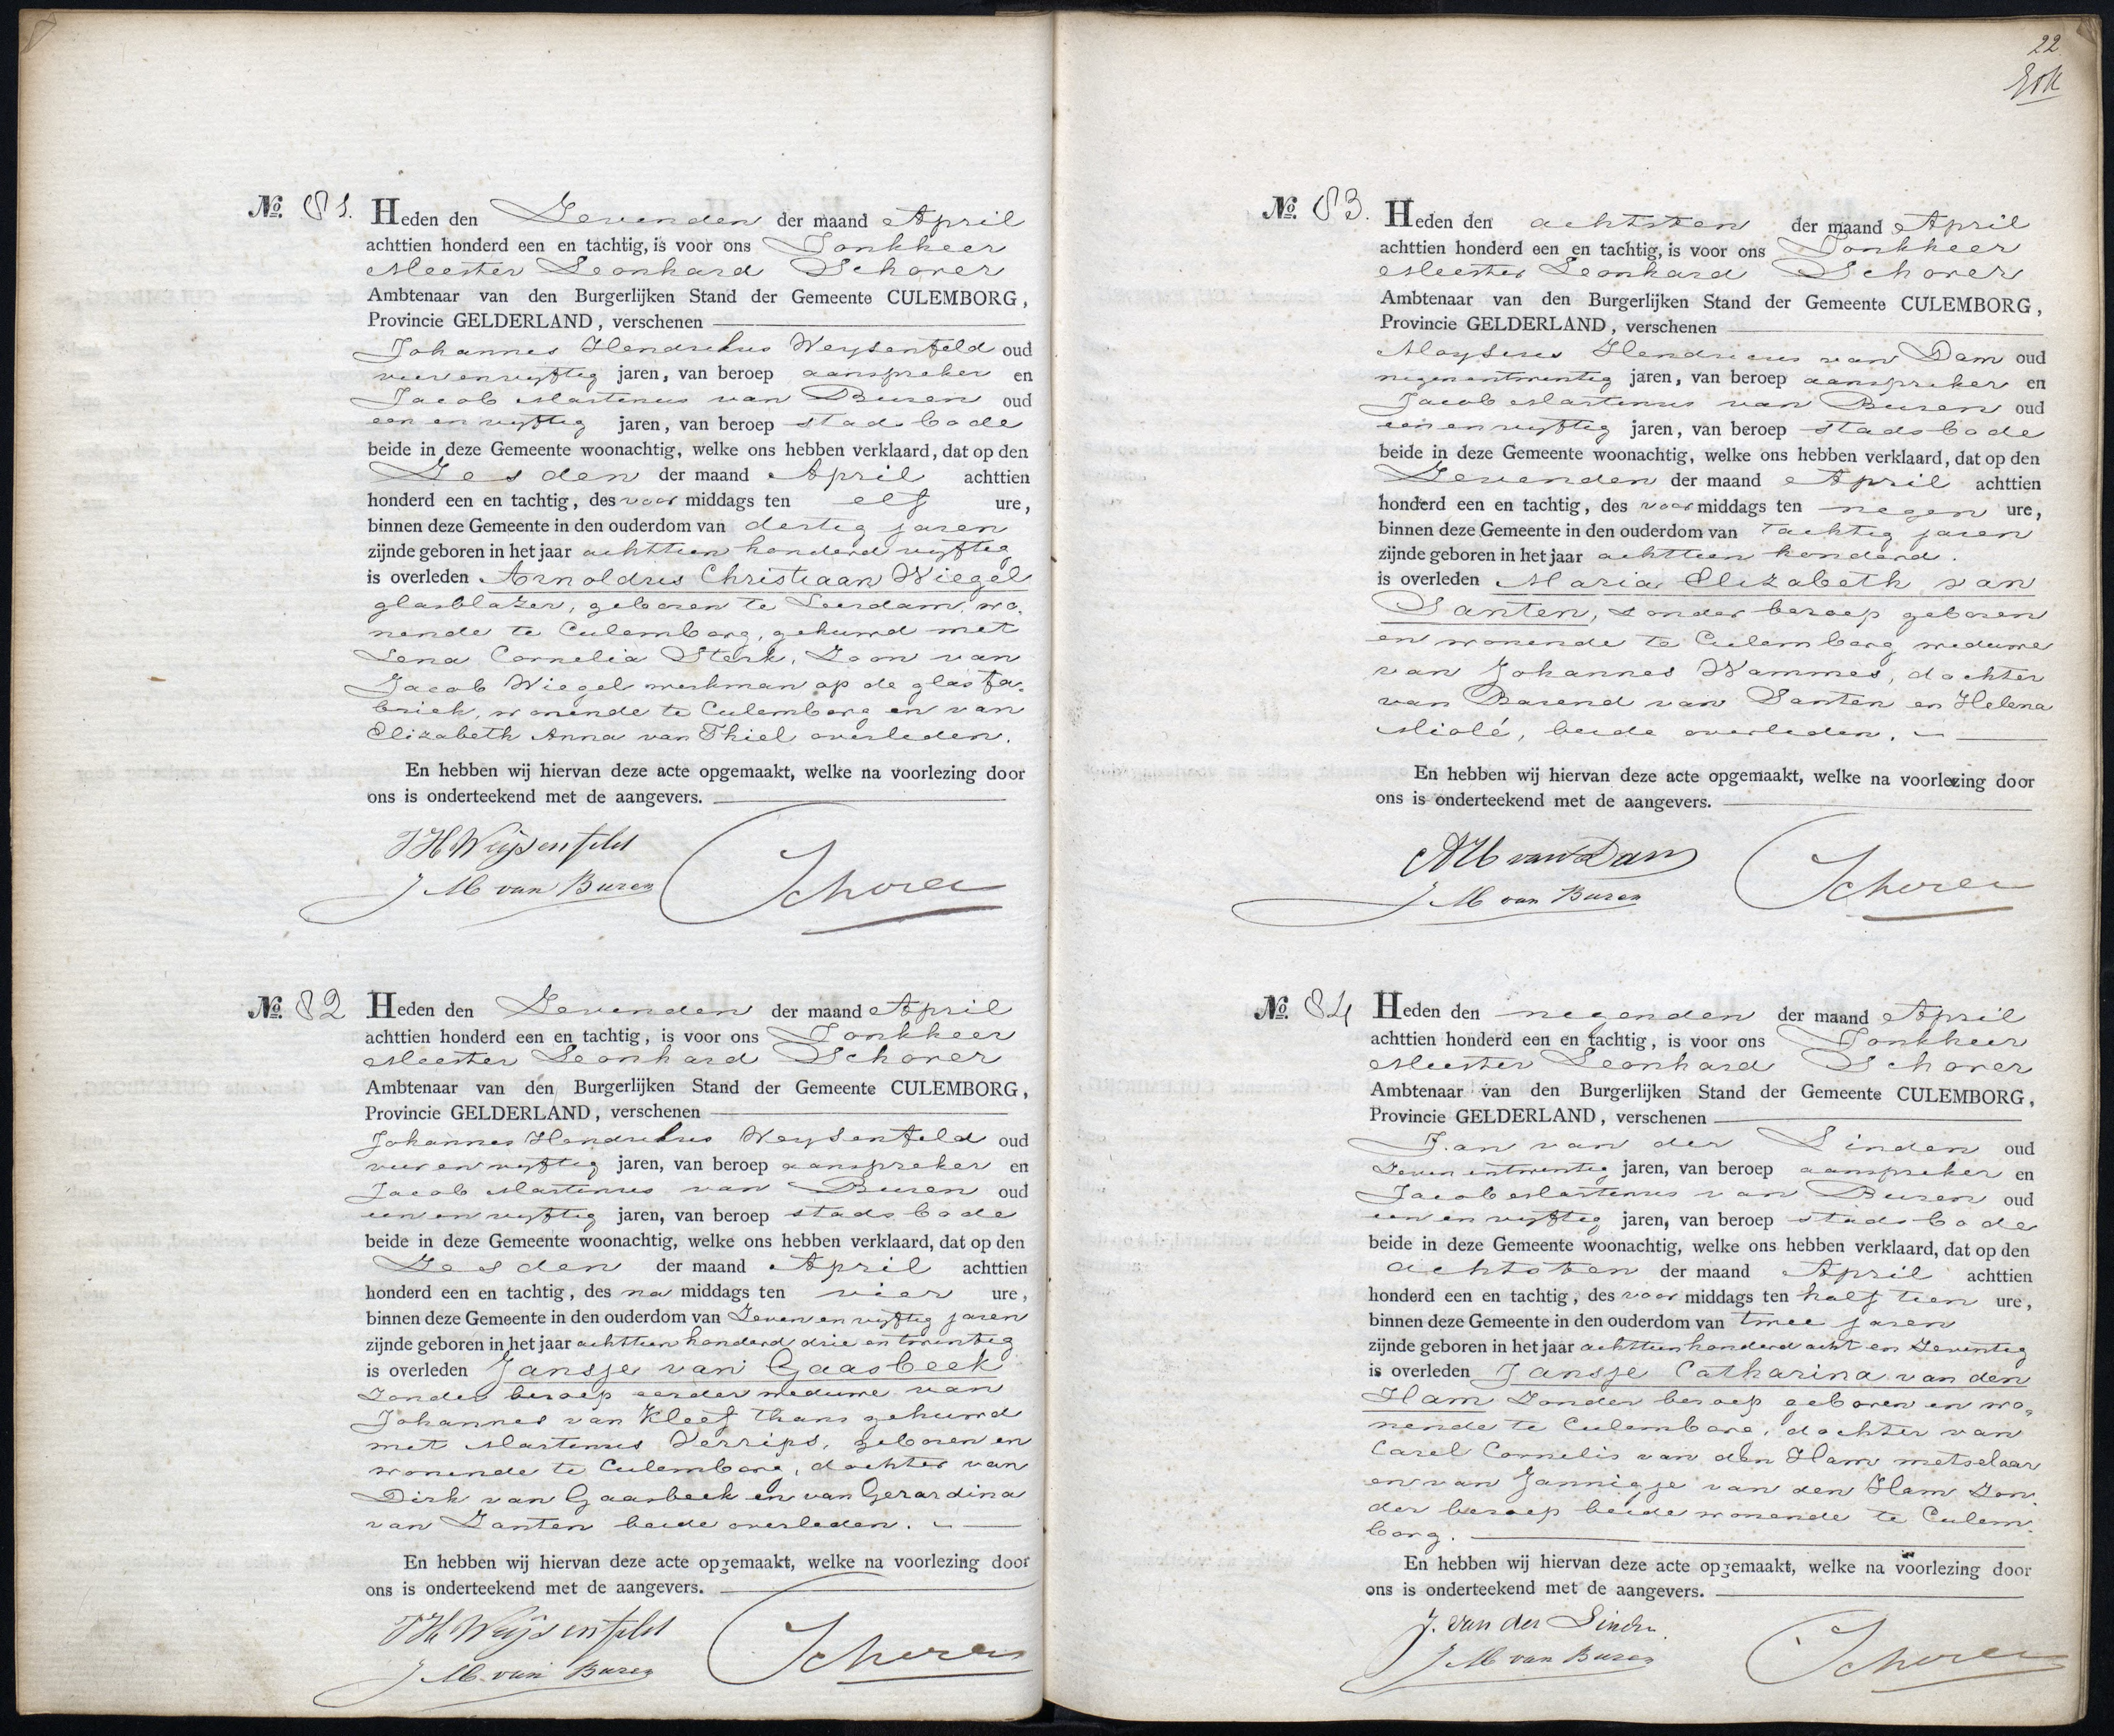 No. 81. Heden den Zevenden der maand April
achttien honderd een en tachtig, is voor ons Jonkheer
Meester Leonhard Schorer
Ambtenaar van den Burgerlijken Stand der Gemeente CULEMBORG,
Provincie GELDERLAND, verschenen
Johannes Hendrikus Weysenfeld oud
vierenvyftig jaren, van beroep aanspreker en
Jacob Martinus van Buren oud
een en vyftig jaren, van beroep stadsbode
beide in deze Gemeente woonachtig, welke ons hebben verklaard, dat op den
Zesden der maand April achttien
honderd een en tachtig, des voor middags ten elf ure,
binnen deze Gemeente in den ouderdom van dertig jaren
zijnde geboren in het jaar achttien honderd vyftig
is overleden Arnoldus Christiaan Wiegel
glasblazer, geboren te Leerdam, wo-
nende te Culemborg, gehuwd met
Lena Cornelia Sterk, Zoon van
Jacob Wiegel werkman op de glasfa-
briek, wonende te Culemborg en van
Elizabeth Anna van Thiel overleden.
En hebben wij hiervan deze acte opgemaakt, welke na voorlezing door
ons is onderteekend met de aangevers.
JH Weijsenfeld
J M van Buren Schorer
No. 82 Heden den Zevenden der maand April
achttien honderd een en tachtig, is voor ons Jonkheer
Meester Leonhard Schorer
Ambtenaar van den Burgerlijken Stand der Gemeente CULEMBORG,
Provincie GELDERLAND, verschenen
Johannes Hendrikus Weysenfeld oud
vier en vyftig jaren, van beroep aanspreker en
Jacob Martinus van Buren oud
een en vyftig jaren, van beroep stadsbode
beide in deze Gemeente woonachtig, welke ons hebben verklaard, dat op den
Zesden der maand April achttien
honderd een en tachtig, des na middags ten vier ure,
binnen deze Gemeente in den ouderdom van Zeven en vyftig jaren
zijnde geboren in het jaar achttien honderd drie en twintig
is overleden Jansje van Gaasbeek
Zonder beroep eerder weduwe van
Johannes van Kleef thans gehuwd
met Martinus Verrips, geboren en
wonende te Culemborg, dochter van
Dirk van Gaasbeek en van Gerardina
van Zanten beide overleden.
En hebben wij hiervan deze acte opgemaakt, welke na voorlezing door
ons is onderteekend met de aangevers.
JH Weijsenfeld
J M van Buren Schorer
22
No. 83. Heden den achtsten der maand April
achttien honderd een en tachtig, is voor ons Jonkheer
Meester Leonhard Schorer
Ambtenaar van den Burgerlijken Stand der Gemeente CULEMBORG,
Provincie GELDERLAND, verschenen
Aloysius Hendricus van Dam oud
negenentwintig jaren, van beroep aanspreker en
Jacob Martinus van Buren oud
een en vyftig jaren, van beroep stadsbode
beide in deze Gemeente woonachtig, welke ons hebben verklaard, dat op den
Zevenden der maand April achttien
honderd een en tachtig, des voor middags ten negen ure,
binnen deze Gemeente in den ouderdom van tachtig jaren
zijnde geboren in het jaar achttien honderd.
is overleden Maria Elizabeth van
Santen, zonder beroep geboren
en wonende te Culemborg weduwe
van Johannes Wammes, dochter
van Barend van Santen en Helena
Miolé, beide overleden.
En hebben wij hiervan deze acte opgemaakt, welke na voorlezing door
ons is onderteekend met de aangevers.
AH van Dam
J M van Buren Schorer
No. 84 Heden den negenden der maand April
achttien honderd een en tachtig, is voor ons Jonkheer
Meester Leonhard Schorer
Ambtenaar van den Burgerlijken Stand der Gemeente CULEMBORG,
Provincie GELDERLAND, verschenen
Jan van der Linden oud
Zevenentwintig jaren, van beroep aanspreker en
Jacob Martinus van Buren oud
een en vyftig jaren, van beroep stadsbode
beide in deze Gemeente woonachtig, welke ons hebben verklaard, dat op den
achtsten der maand April achttien
honderd een en tachtig, des voor middags ten half tien ure,
binnen deze Gemeente in den ouderdom van twee jaren
zijnde geboren in het jaar achttienhonderd acht en Zeventig
is overleden Jansje Catharina van den
Ham Zonder beroep geboren en wo-
nende te Culemborg, dochter van
Carel Cornelis van den Ham metselaar
en van Jannigje van den Ham Zon-
der beroep beide wonende te Culem-
borg.
En hebben wij hiervan deze acte opgemaakt, welke na voorlezing door
ons is onderteekend met de aangevers.
J. van der Linden
J M van Buren Schorer